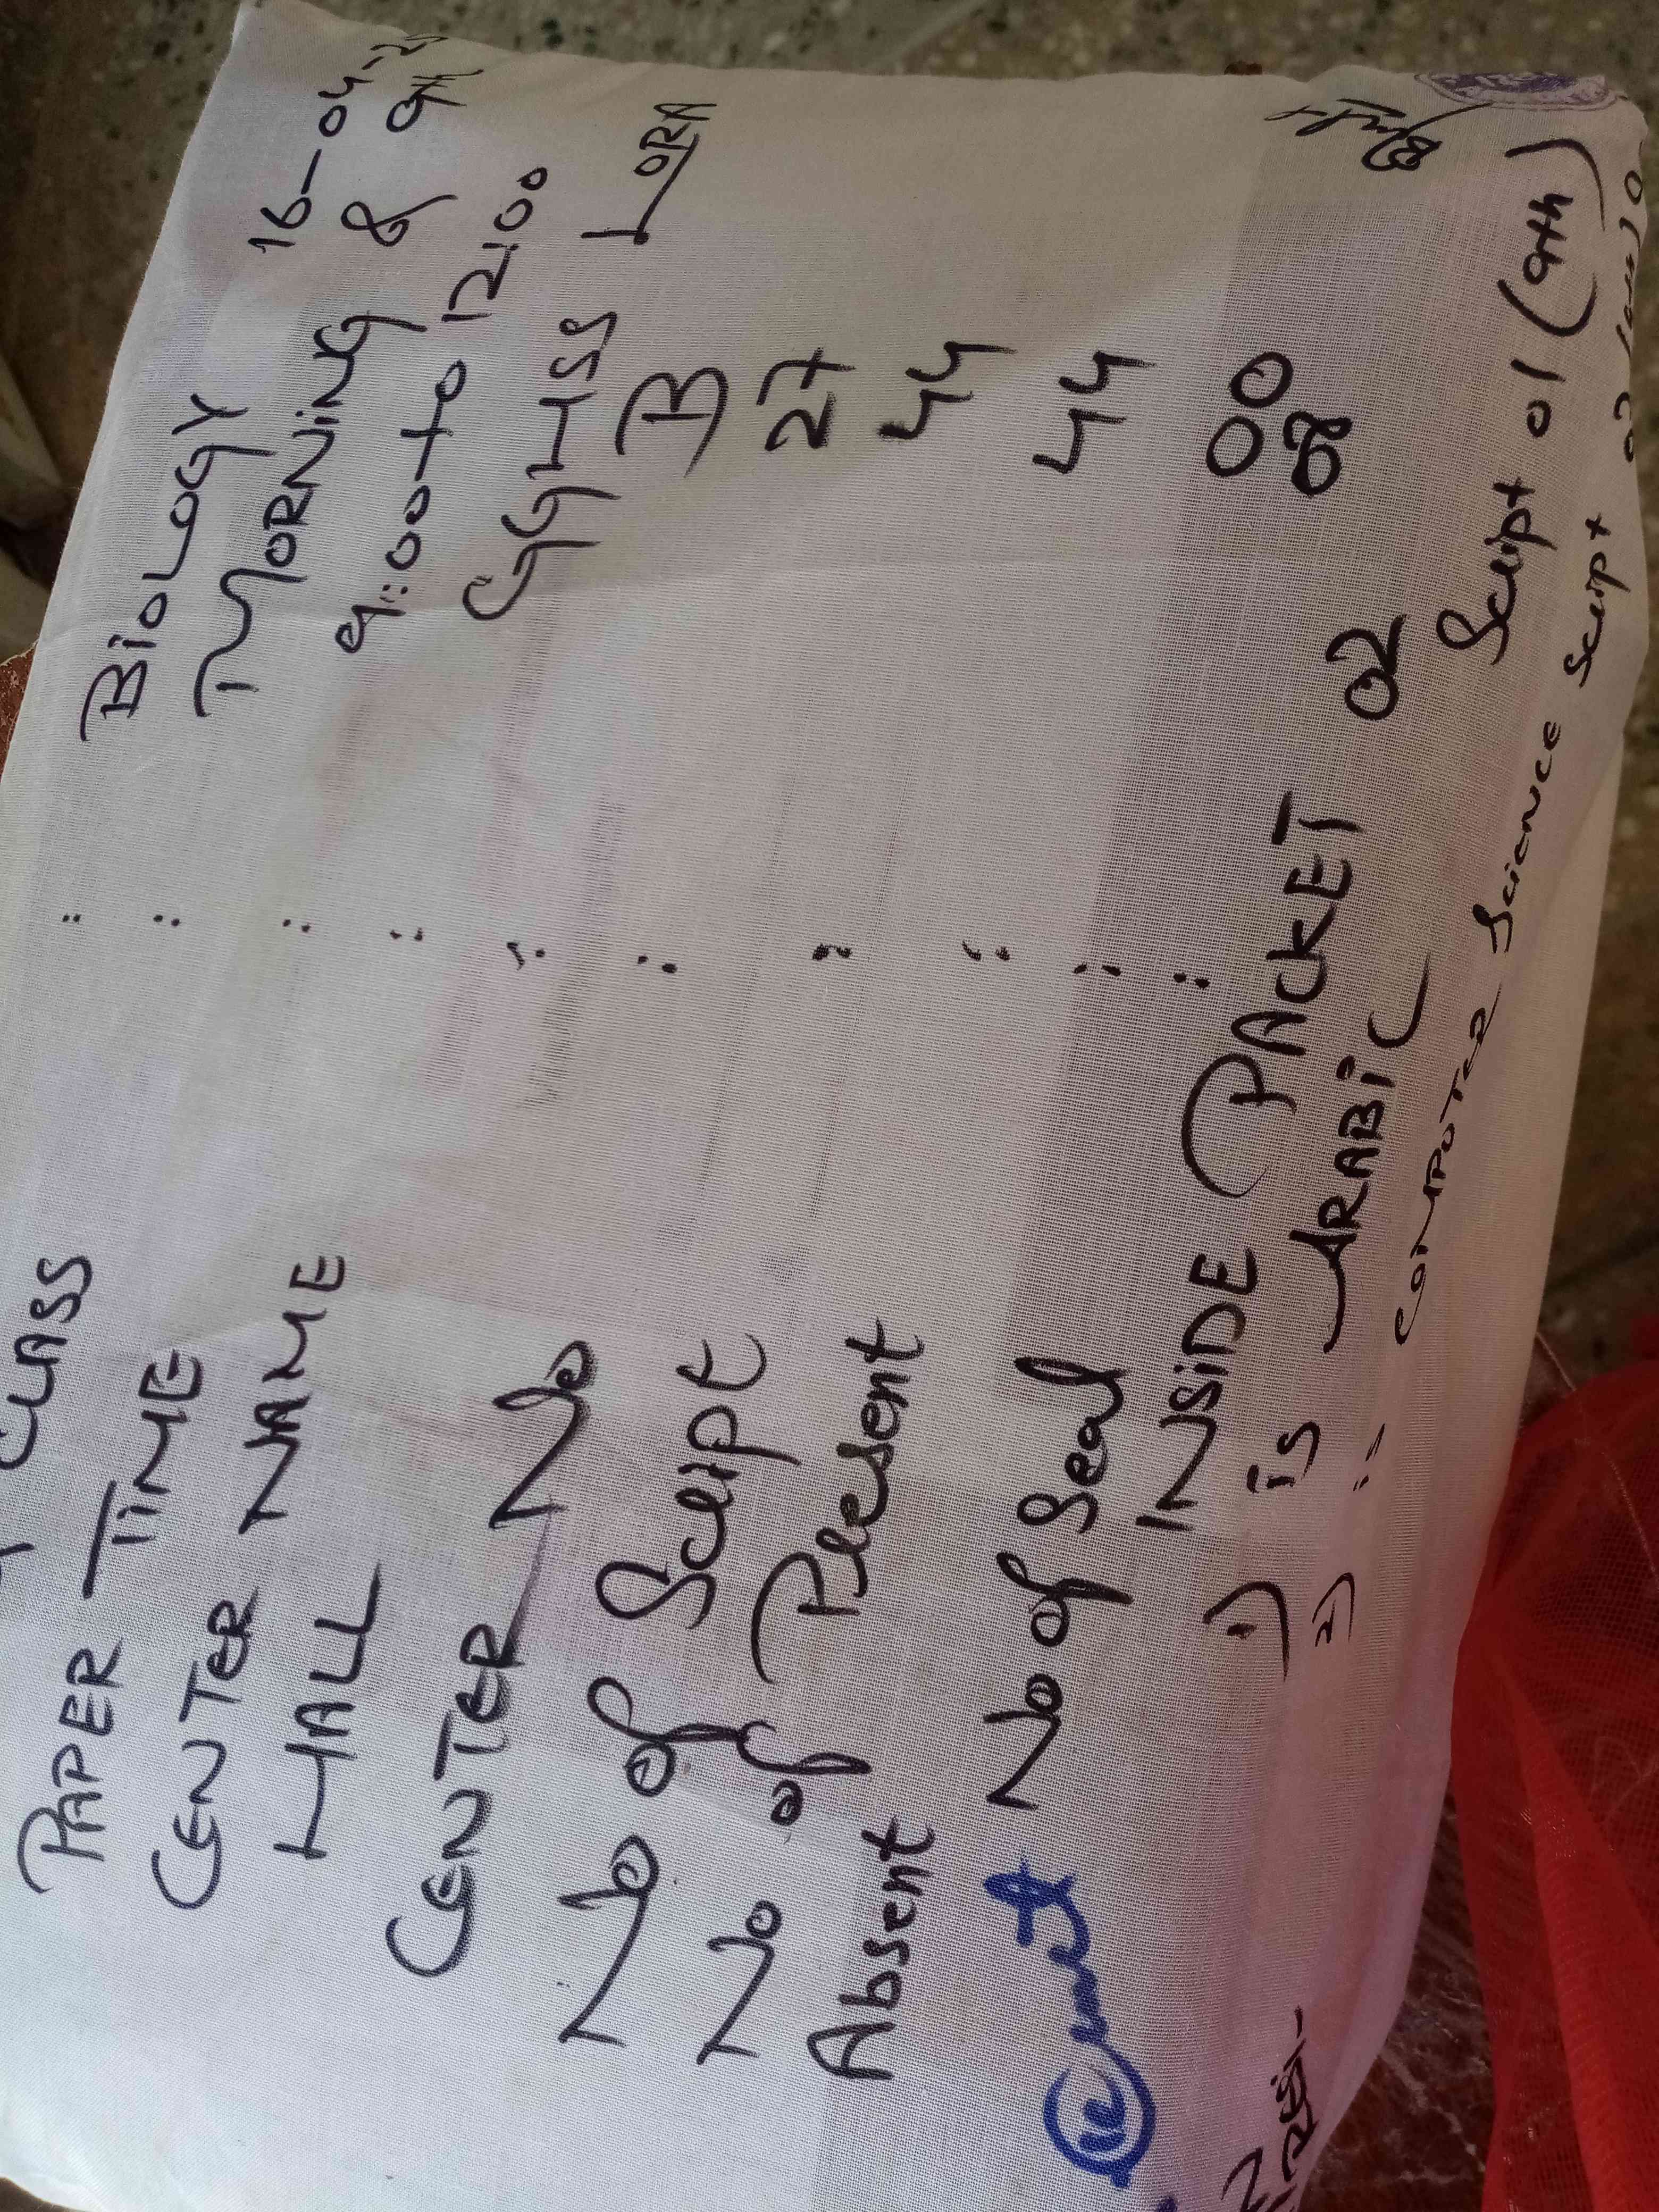 BioLOGY 16-04-2
CLASS : MORNING & 9th
PAPER TIME : 9:00 to 12:00
CENTER NAME : GGHSS LORA
HALL : B
CENTER No : 27
No of Script : 44
No of Present : 44
Absent : 00
No of Seal : 08
INSIDE PACKET 02
1) is ARABIC Script 01 (9th)
2) is COMPUTER Science Script 02